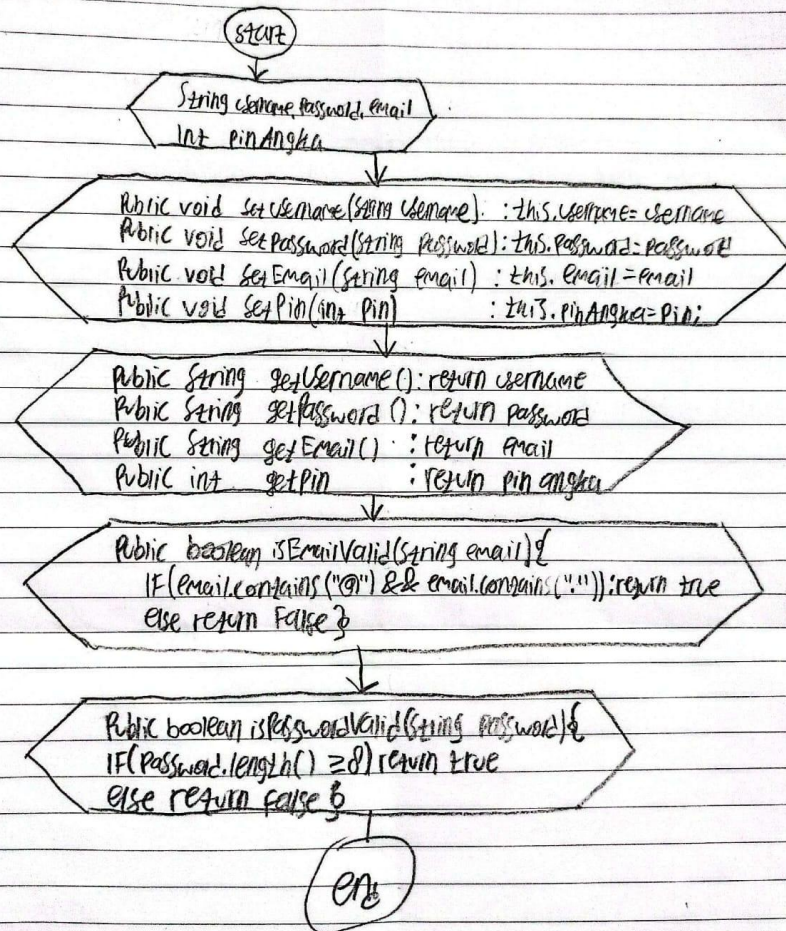 start
String username, Password, email
Int pinAngka
Public void setUsername(String username) : this.username = username
Public void setPassword(String password) : this.password = password
Public void setEmail(String email) : this.email = email
Public void setPin(int pin) : this.pinAngka = Pin;
Public String getUsername() : return username
Public String getPassword() : return password
Public String getEmail() : return email
Public int getpin : return pin angka
Public boolean isEmailValid(String email){
IF(email.contains("@") && email.contains(".")) : return true
else return False }
Public boolean isPasswordValid(String password){
IF(Password.length() ≥8) return true
else return false }
end